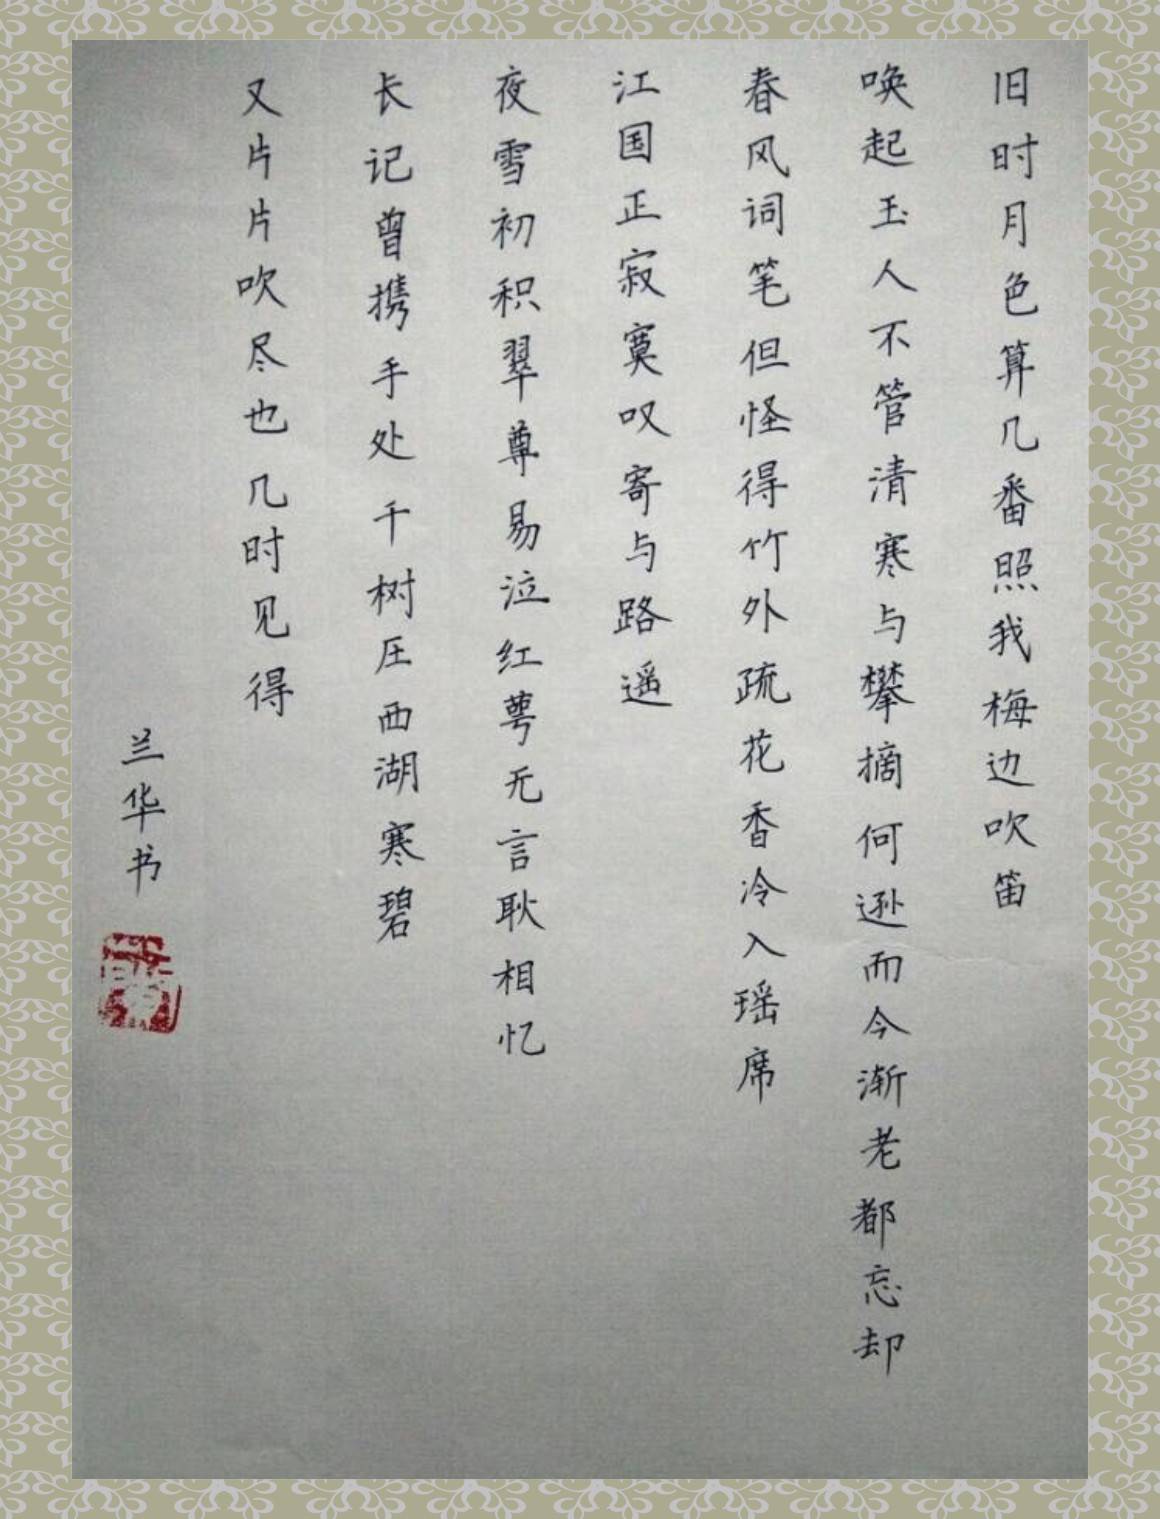 旧时月色算几番照我梅边吹笛
唤起玉人不管清寒与攀摘何逊而今渐老都忘却
春风词笔但怪得竹外疏花香冷入瑶席
江国正寂寞叹寄与路遥
夜雪初积翠尊易泣红萼无言耿相忆
长记曾携手处千树压西湖寒碧
又片片吹尽也几时见得
兰华书